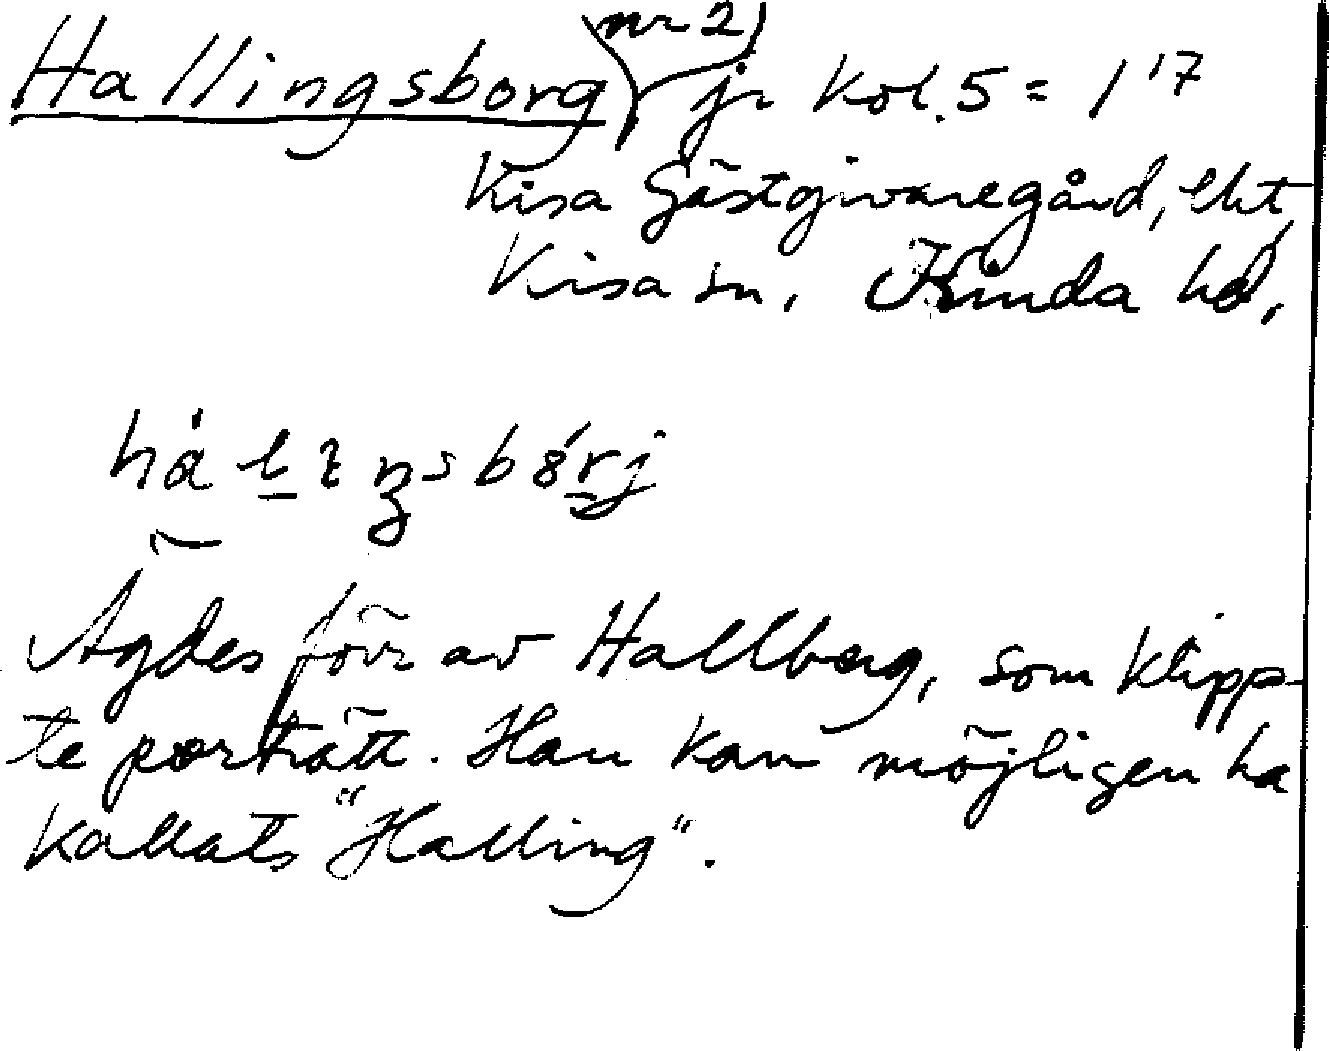 Hallingsborg (nr 2) jr Kol. 5 = 1¹⁷
Kisa Gästgivaregård, lht,
Kisa sn, Kinda hd,
Ägdes förr av Hallberg, som klipp-
te porträtt. Han kan möjligen ha
kallats "Halling".